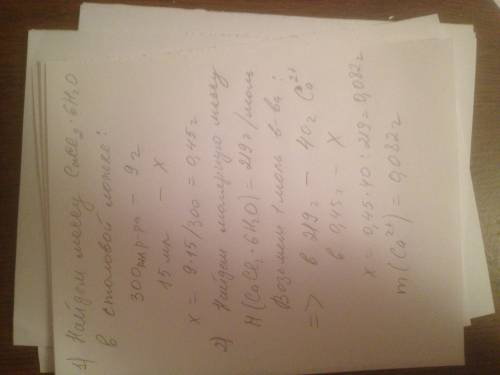 1) Найдем массу CaCl₂·6H₂O
в столовой ложке:
300мл р-ра – 9г
15мл – x
x = 9·15/300 = 0,45г
2) Найдем молярную массу
M(CaCl₂·6H₂O) = 219г/моль
Возьмем 1 моль в-ва:
=> в 219г – 40г Ca²⁺
в 0,45г – x
x = 0,45·40:219 = 0,082г
m(Ca²⁺) = 0,082г